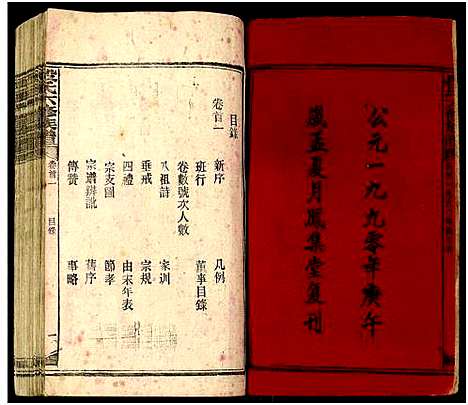 公元一九九零年庚午
歲孟夏月鳳集堂复刊
目錄
卷首一
新序　凡例
班行　董事目錄
卷數號次人數
八祖詩　家训
垂戒　宗規
四禮　由來年表
宗支圖　節孝
宗譜辨訛　舊序
傳贊　事略
卷首一　目錄